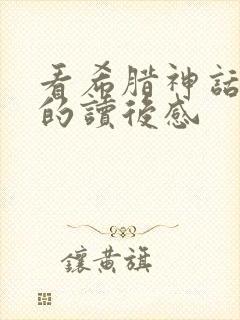 看希腊神話
的讀後感
鑲黃旗